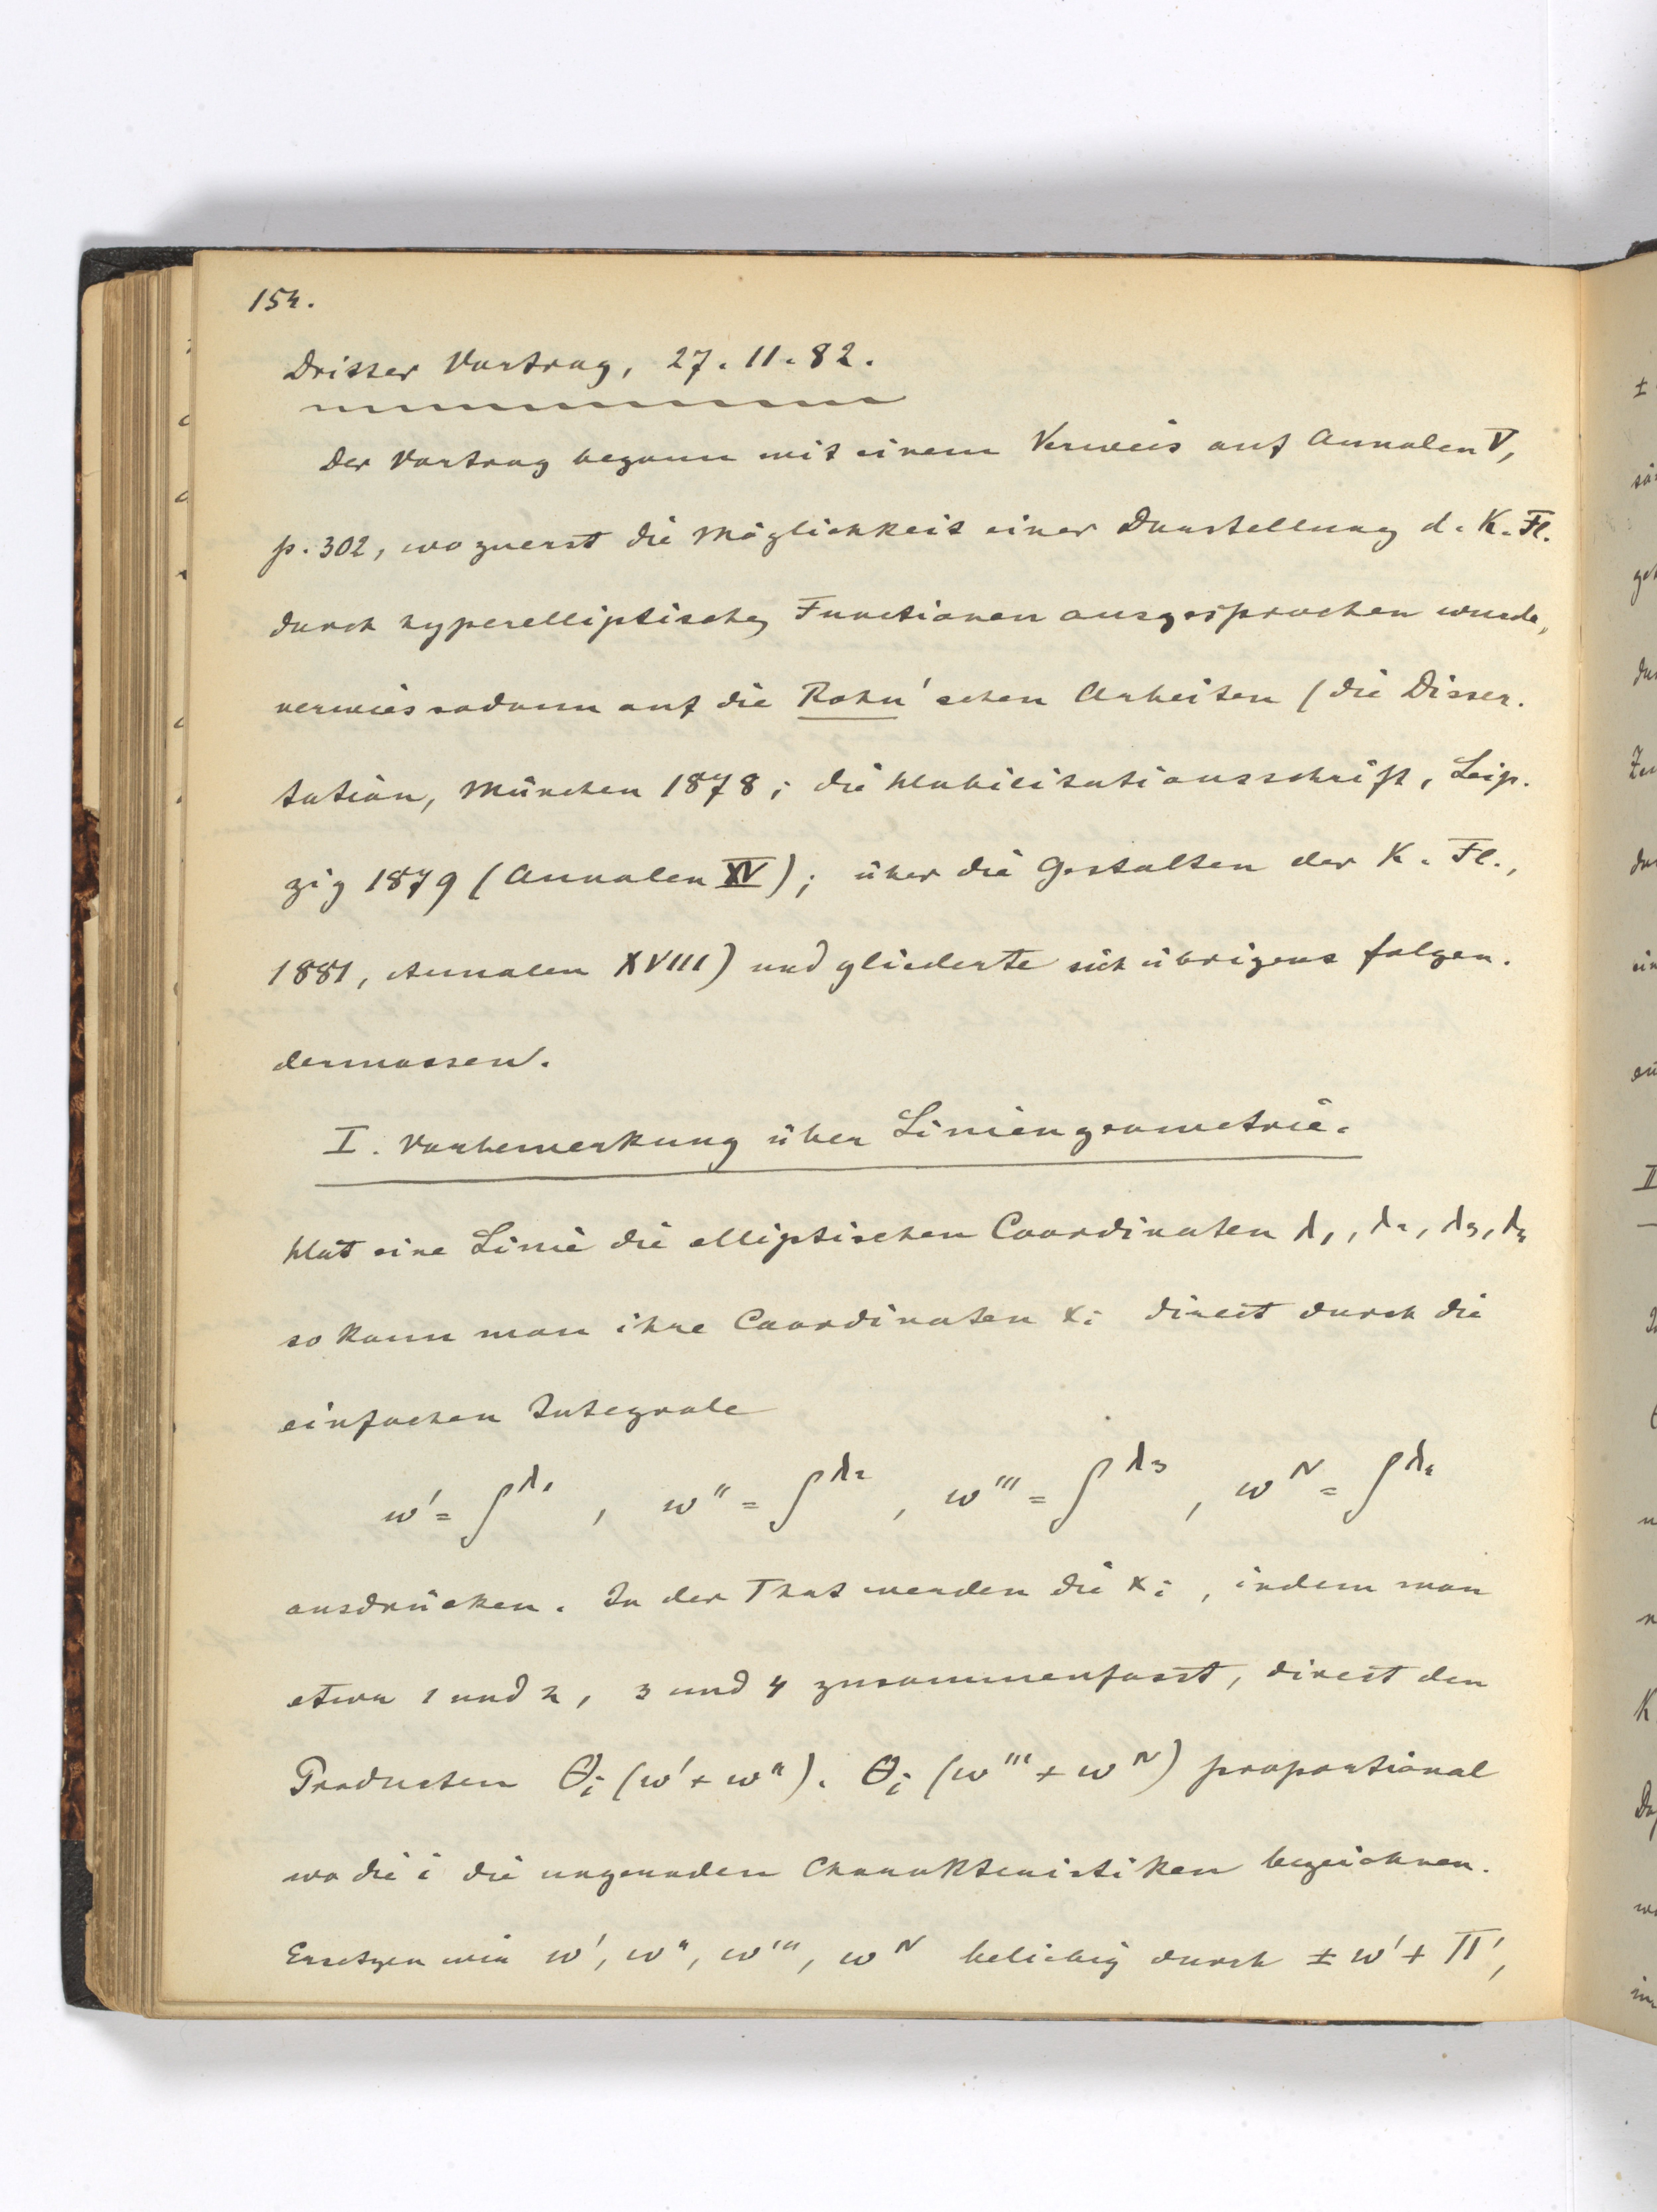 154.
Dritter Vortrag, 27.11.82.
Der Vortrag begann mit einem Verweis auf Annalen V,
p. 302, wo zuerst die Möglichkeit einer Darstellung d. K. Fl.
durch hyperelliptische Functionen ausgesprochen wurde,
verwies sodann auf die Rohn'schen Arbeiten (die Disser-
tation, München 1878; die Habilitationsschrift, Leip-
zig 1879 (Annalen XV); über die Gestalten der K. Fl.,
1881, Annalen XVIII) und gliederte sich übrigens folgen-
dermassen.
I. Vorbemerkung über Liniengeometrie.
Hat eine Linie die elliptischen Coordinaten λ₁, λ₂, λ₃, λ₄
so kann man ihre Coordinaten xᵢ direct durch die
einfachen Integrale
w' = ∫^λ₁ , w'' = ∫^λ₂ , w''' = ∫^λ₃ , w^IV = ∫^λ₄
ausdrücken. In der That werden die xᵢ, indem man
etwa 1 und 2, 3 und 4 zusammenfasst, direct den
Producten θᵢ (w' + w'') . θᵢ (w''' + w^IV) proportional
wo die i die ungeraden Charakteristiken bezeichnen.
Ersetzen wir w', w'', w''', w^IV beliebig durch ± w' + Π',